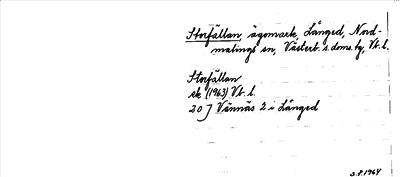 Storfällan, ägomark, Långed, Nord-
malings sn, Västerb. s. doms. by, Vb. l.
Storfällan
ek (1963) Vb. l.
20 J Vännäs 2 i Långed
2.8.1964